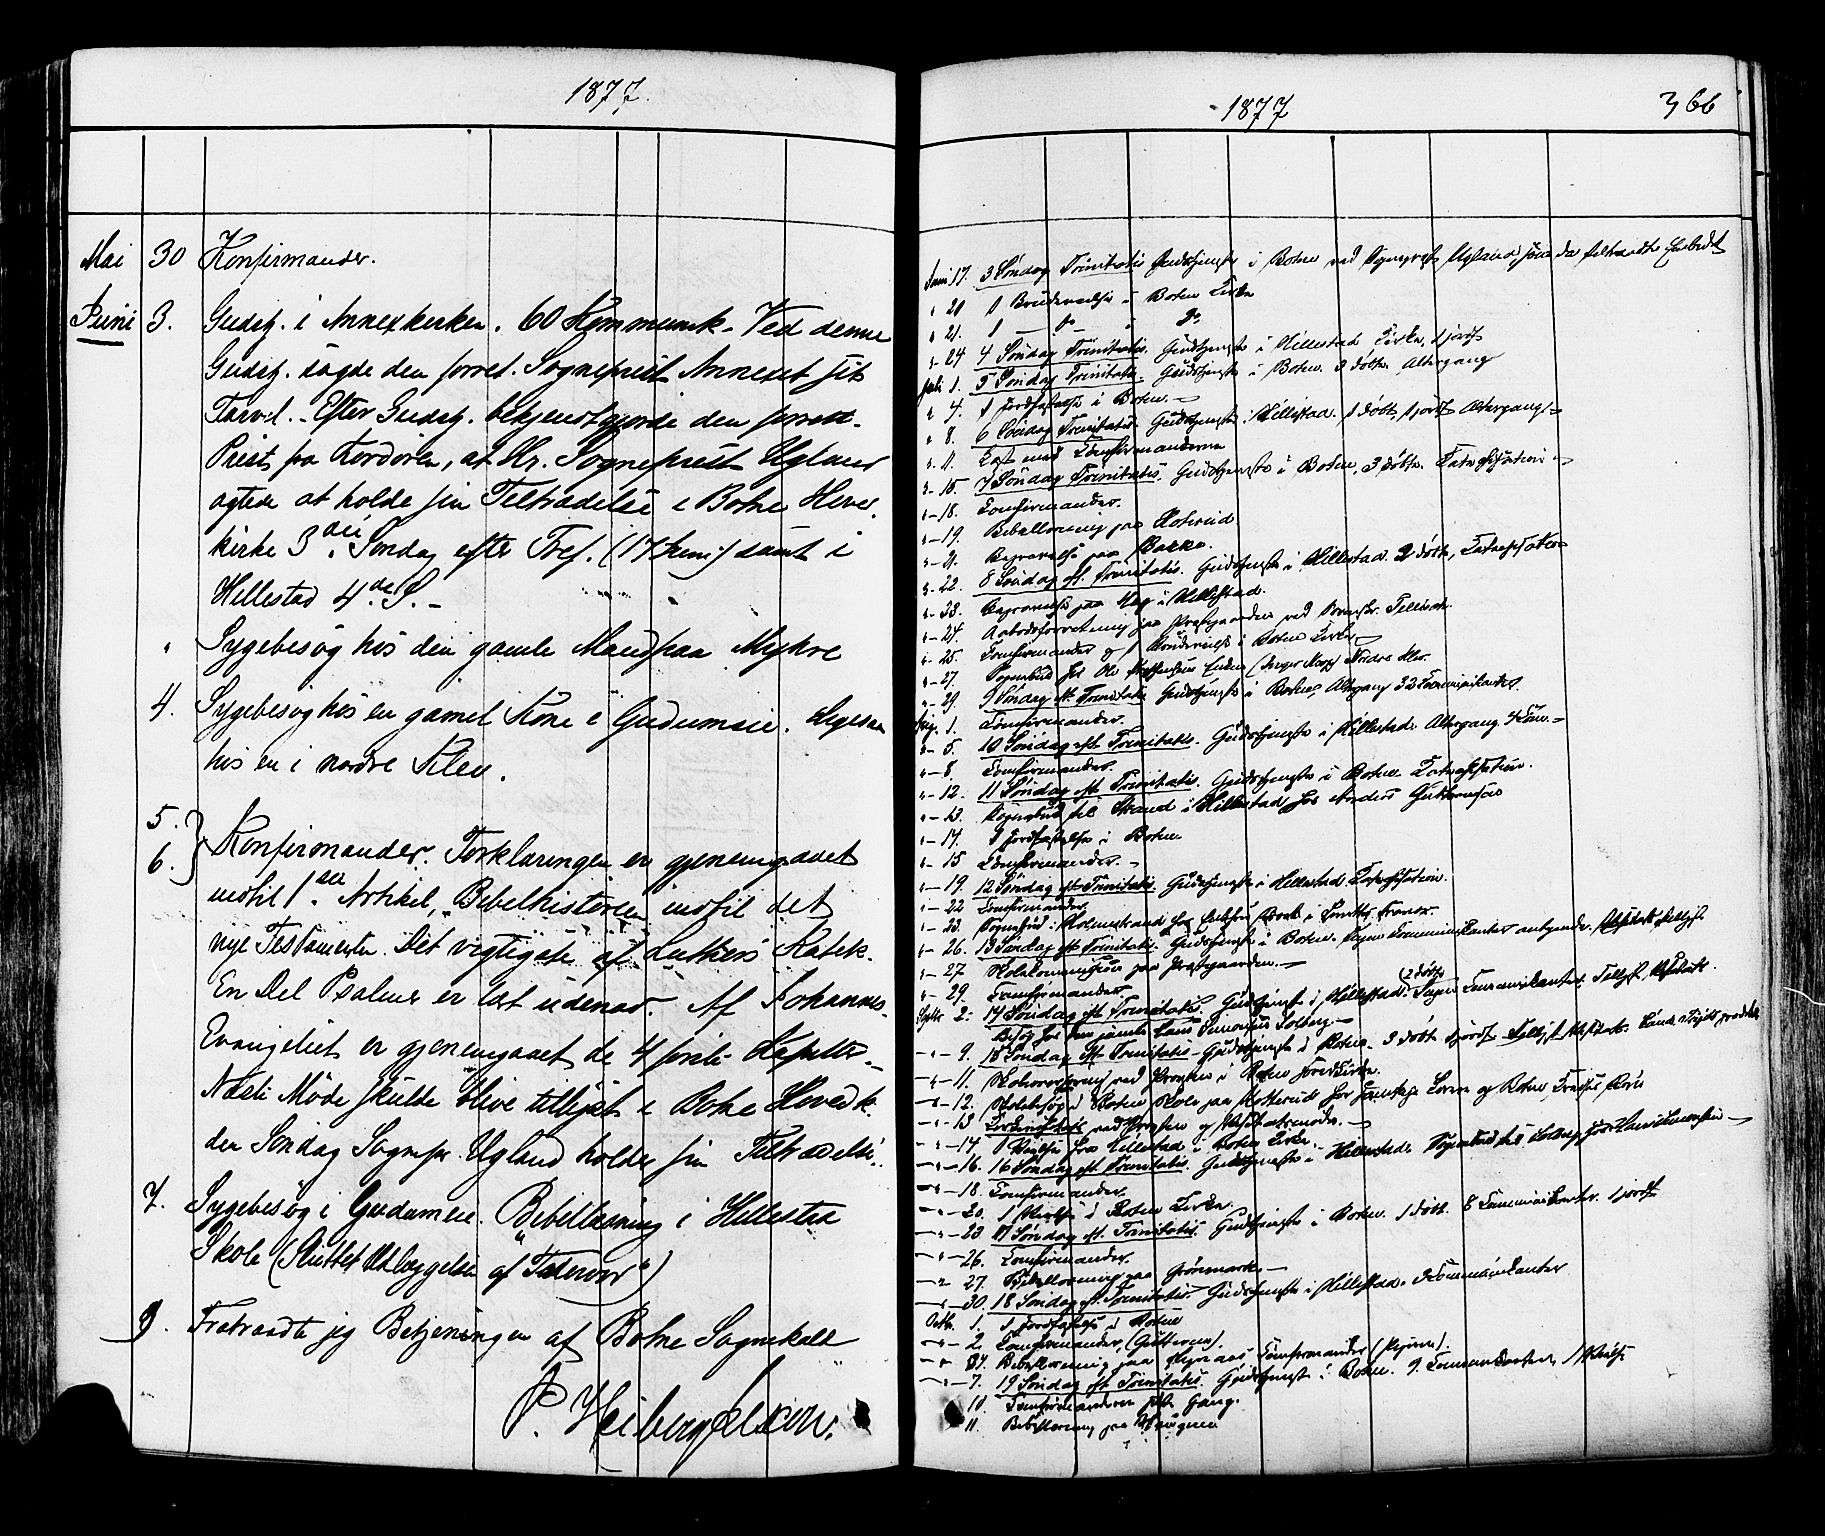 1877.
Mai 30 Konfirmander.
Juni 3. Gudstj. i Annexkirken. 60 Kommunik. Ved denne
Gudstj. sagde den forret. Sogneprest Annexet sit
Farvel. Efter Gudstj. bekjendtgjorde den forrett.
Prest fra Kordøren, at Hr. Sogneprest Ugland
agtede at holde sin Tiltrædelse i Botne Hoved
kirke 3die Søndag efter Tref. (17 Juni) samt i
Hillestad 4de S. -
" Sygebesøg hos den gamle Mand paa Myhre
4. Sygebesøg hos en gamel Kone i Gudumeie. Ligesaa
hos en i nordre Klev.
5. 6. } Konfirmander. Forklaringen er gjenemgaaet
indtil 1ste Artikel, Bibelhistorien indtil det
nye Testamente. Det vigtigste af Luthers Katek.
En Del Psalmer er læst udenad. Af Johannes
Evangeliet er gjenemgaaet de 4 første Kapitler -
Næste Møde skulde blive tillyst i Botne Hovedk.
den Søndag Sognepr. Ugland holder sin Tiltrædelse.
7. Sygebesøg i Gudumeie. Bibellæsning i Hillestad
Skole (Sluttet Udlæggelsen af "Fadervor")
9. Fratraadte jeg Betjeningen af Botne Sognekald
P. Heiberg
1877 366
Juni 17. 3 Søndag Trinitatis Gudstjeneste i Botne ved Sognepr. Ugland, som da tiltraadte Embedet
" 20 1 Brudevielse i Botne Kirke
" 21. 1 — do — " do
" 24 4 Søndag Trinitatis. Gudstjeneste i Hillestad Kirke, 1 jordf
Juli 1. 5 Søndag Trinitatis. Gudstjeneste i Botne. 3 døbte. Altergang
" 4. 1 Jordfæstelse i Botne. -
" 8. 6 Søndag Trinitatis. Gudstjeneste i Hillestad. 1 døbt, 1 jordf. Altergang -
" 11. Læst med Konfirmanderne
" 15. 7 Søndag Trinitatis. Gudstjeneste i Botne, 3 døbte. Katechisation -
" 18. Confirmander.
" 19. Bibellæsning paa
" 21. Begravelse paa Bakke.
" 22. 8 Søndag eft. Trinitatis. Gudstjeneste i Hillestad. 2 døbte, Katechisation
" 23. Begravelse paa Hag i Hillestad.
" 24. Aabodsforretning paa Præstegaarden ved
" 25. Confirmander og 1 Brudevielse i Botne Kirke -
" 27. Sognebud hos Ole Nordre Klev.
" 29. 9 Søndag eft. Trinitatis Gudstjeneste i Botne, Altergang 32 Communikanter.
Aug. 1. Confirmander.
" 5. 10 Søndag eft. Trinitatis. Gudstjeneste i Hillestad. Altergang 4 Com. -
" 8. Confirmander.
" 12. 11 Søndag eft. Trinitatis. Gudstjeneste i Botne. Katechisation.
" 13. Sognebud til Strand i Hillestad hos Anders Guttormsen
" 14. 1 Jordfæstelse i Botne
" 15 Confirmander. -
" 19. 12 Søndag eft. Trinitatis. Gudstjeneste i Hillestad Katechisation.
" 22 Confirmander.
" 23. Sognebud i Holmestrand hos
" 26. 13 Søndag eft. Trinitatis. Gudstjeneste i Botne.
" 27 Skolekommission paa Præstegaarden. -
" 29. Confirmander
Septbr 2. 14 Søndag eft. Trinitatis. Gudstjeneste i Hillestad. (2 døbte) Communikanter.
Besøg hos den gamle Hans Simonsen Solberg -
" 9. 15 Søndag eft. Trinitatis - Gudstjeneste i Botne. 3 døbt 1 jordf
" 11. ved Provsten i Botne Hovedkirke.
" 12. Skolebesøg i Botne Skole paa
" 13 ved Provsten og
" 14 1 Vielse fra Hillestad i Botne Kirke.
" 16. 16 Søndag eft. Trinitatis. Gudstjeneste i Hillestad. Sognebud til Solberg
" 18. Confirmander.
" 20. 1 Vielse i Botne Kirke.
" 23 17 Søndag eft. Trinitatis. Gudstjeneste i Botne. 1 døbt. 8 Communikanter. 1 jordf
" 26. Confirmander.
" 27. Bibellæsning paa Grønmark -
" 30. 18 Søndag eft. Trinitatis. Gudstjeneste i Hillestad. 3 Communikanter
Octb. 1. 1 Jordfæstelse i Botne
" 2 Confirmander (Gutterne).
" 34. Bibellæsning paa Confirmander (Pigerne).
" 7. 19 Søndag eft. Trinitatis. Gudstjenest i Botne. 9 Communikanter, 1 Vielse
10. Confirmanderne Gang.
11. Bibellæsning paa